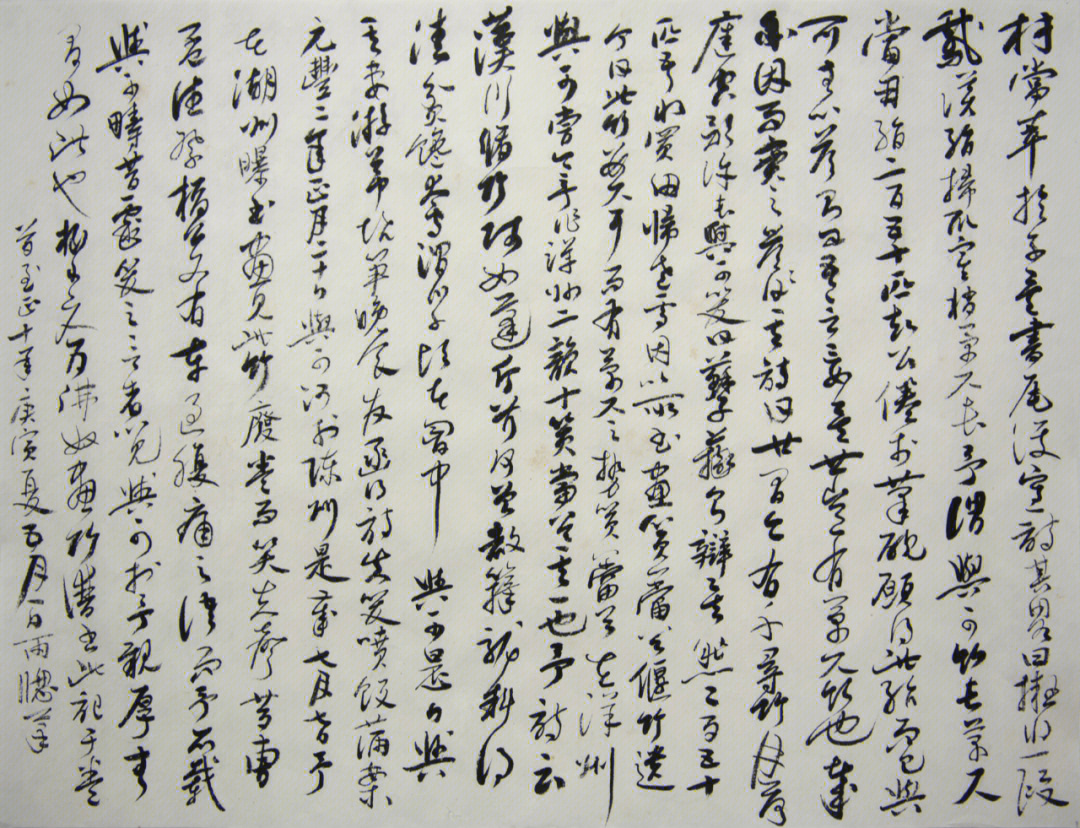 材當萃於子矣書尾復寫一詩其畧曰擬將一段
鵝溪絹掃取寒梢萬尺長予謂與可竹長萬尺
當用絹二百五十匹知公倦於筆硯願得此絹而已與
可無以答則曰吾言妄矣世豈有萬尺竹也哉
余因而實之答其詩曰世間亦有千尋竹月落
庭空影許長與可笑曰蘇子辯則辯矣然二百五十
匹吾將買田歸老焉因以所畫篔簹谷偃竹遺
予曰此竹數尺耳而有萬尺之勢篔簹谷在洋州
與可嘗令予作洋州三十詠篔簹谷其一也予詩云
漢川脩竹賤如蓬斤斧何曾赦籜龍料得
清貧饞太守渭川千畝在胸中 與可是日與
其妻游谷中燒筍晚食發函得詩失笑噴飯滿案
元豐二年正月二十日與可沒於陳州是歲七月七日予
在湖州曝書畫見此竹廢卷而哭失聲昔曹
孟德祭橋公文有車過腹痛之語而予亦載
與可疇昔戲笑之言者以見與可於予親厚無
間如此也梅道人為佛奴畫竹譜書此記于卷
首至正十年庚寅夏五月一日雨牕筆